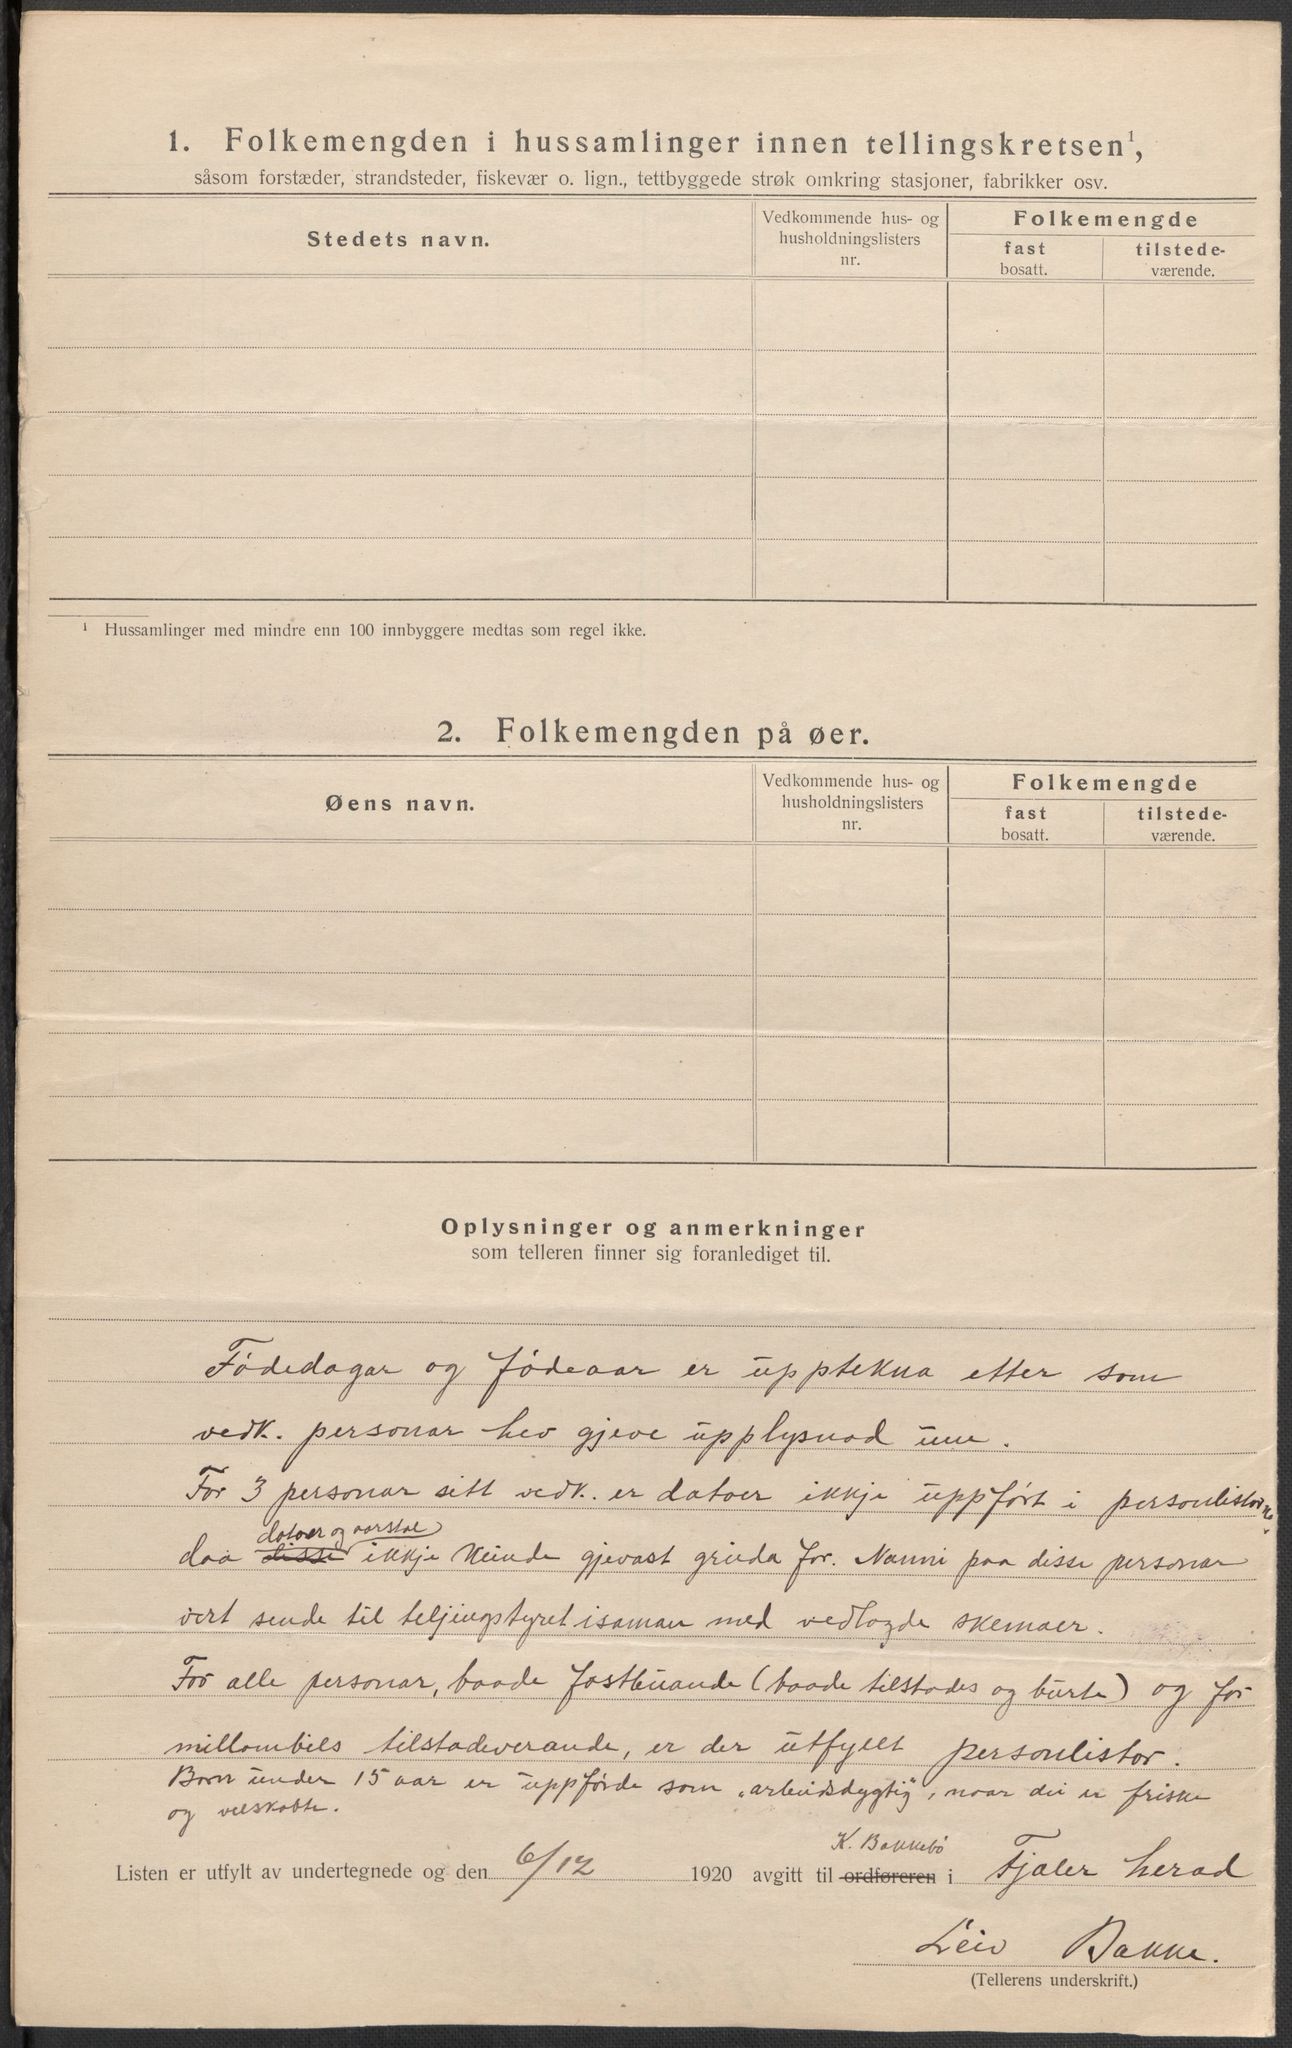 1. Folkemengden i hussamlinger innen tellingskretsen¹,
såsom forstæder, strandsteder, fiskevær o. lign., tettbyggede strøk omkring stasjoner, fabrikker osv.
Stedets navn.
Vedkommende hus- og
husholdningslisters
nr.
Folkemengde
fast
bosatt.
tilstede-
værende.
¹ Hussamlinger med mindre enn 100 innbyggere medtas som regel ikke.
2. Folkemengden på øer.
Øens navn.
Vedkommende hus- og
husholdningslisters
nr.
Folkemengde
fast
bosatt.
tilstede-
værende.
Oplysninger og anmerkninger
som telleren finner sig foranlediget til.
Fødedagar og fødeaar er upptekna etter som
vedk. personar hev gjeve upplysnad um.
For 3 personar sitt vedk. er datoer ikkje uppført i personlistorne,
datoer og aarstal
daa disse ikkje kunde gjevast greida for. Namni paa disse personar
vert sende til teljingstyret isaman med vedlagde skemaer.
For alle personar, baade fastbuande (baade tilstades og burte) og for
millombils tilstadeverande, er der utfyllt personlistor.
Born under 15 aar er uppførde som „arbeidsdygtig", naar dei er friske
og velskabte.
K. Bakkebø
Listen er utfylt av undertegnede og den 6/12 1920 avgitt til ordføreren i Fjaler herad
Leiv Bakke.
(Tellerens underskrift.)